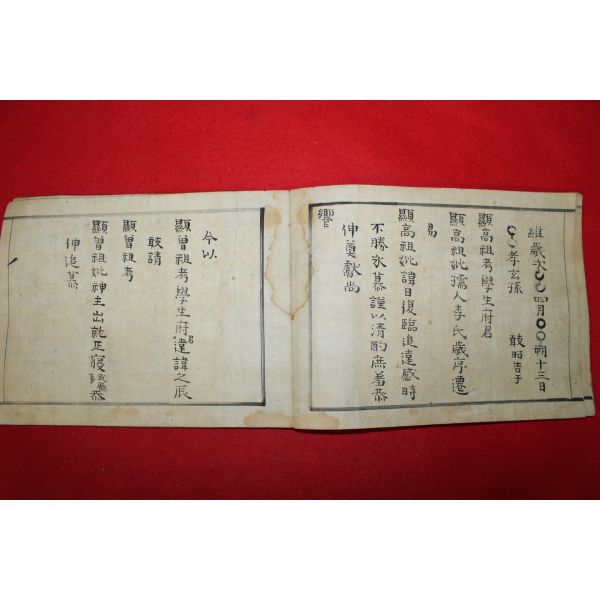 維歲次〇〇四月〇〇朔十三日
〇〇孝玄孫 敢昭告于
顯高祖考學生府君
顯高祖妣孺人李氏歲序遷
易
顯高祖妣諱日復臨追遠感時
不勝永慕謹以清酌庶羞恭
伸奠獻尚
饗
今以
顯曾祖考學生府君遠諱之辰
敢請
顯曾祖考
顯曾祖妣神主出就正寢 恭
伸追慕